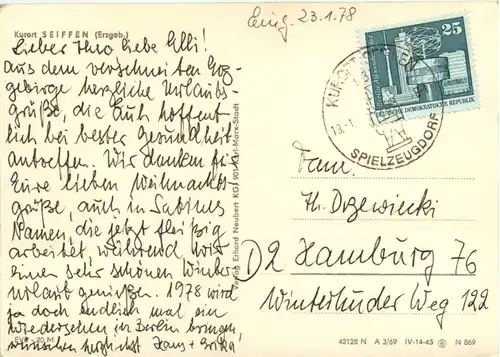 Kurort SEIFFEN (Erzgeb.)
Eing. 23.1.78
25
DEUTSCHE DEMOKRATISCHE REPUBLIK
KURORT
SPIELZEUGDORF
Lieber Theo liebe Elli!
Aus dem verschneiten Erz-
gebirge herzliche Urlaubs-
grüße, die Euch hoffent-
lich bei bester Gesundheit
antreffen. Wir danken für
Eure lieben Weihnachts-
grüße, auch in Sabines
Namen, die jetzt fleißig
arbeitet, während wir
einen sehr schönen Winter-
urlaub genießen. 1978 wird
ja doch endlich mal ein
Wiedersehen in Berlin bringen,
wünschen herzlichst Hans + Erika
EVP –.20 M
Verlag Erhard Neubert KG 901 Karl-Marx-Stadt
Fam.
Th. Drzewiecki
D2 Hamburg 76
Winterhuder Weg 122
42128 N A 3/69 IV-14-45 N 869